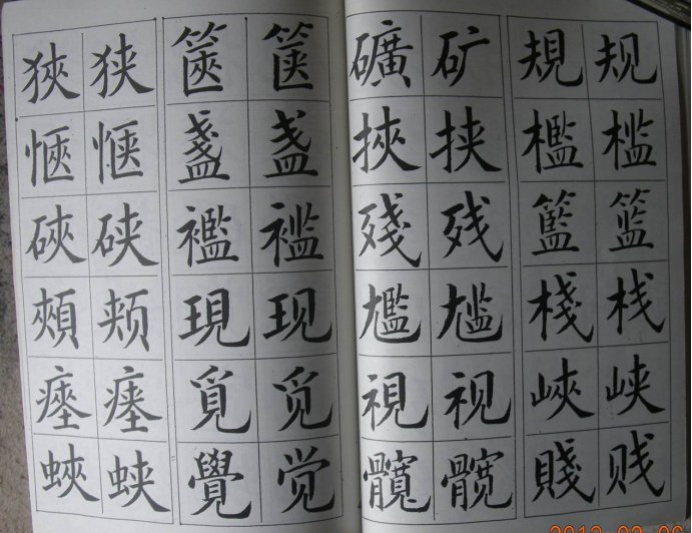 狹 狭 篋 箧 礦 矿 規 规
愜 惬 盞 盏 挾 挟 檻 槛
硤 硖 襤 褴 殘 残 籃 篮
頰 颊 現 现 尷 尴 棧 栈
瘞 瘗 覓 觅 視 视 峽 峡
蛺 蛱 覺 觉 髖 髋 賤 贱